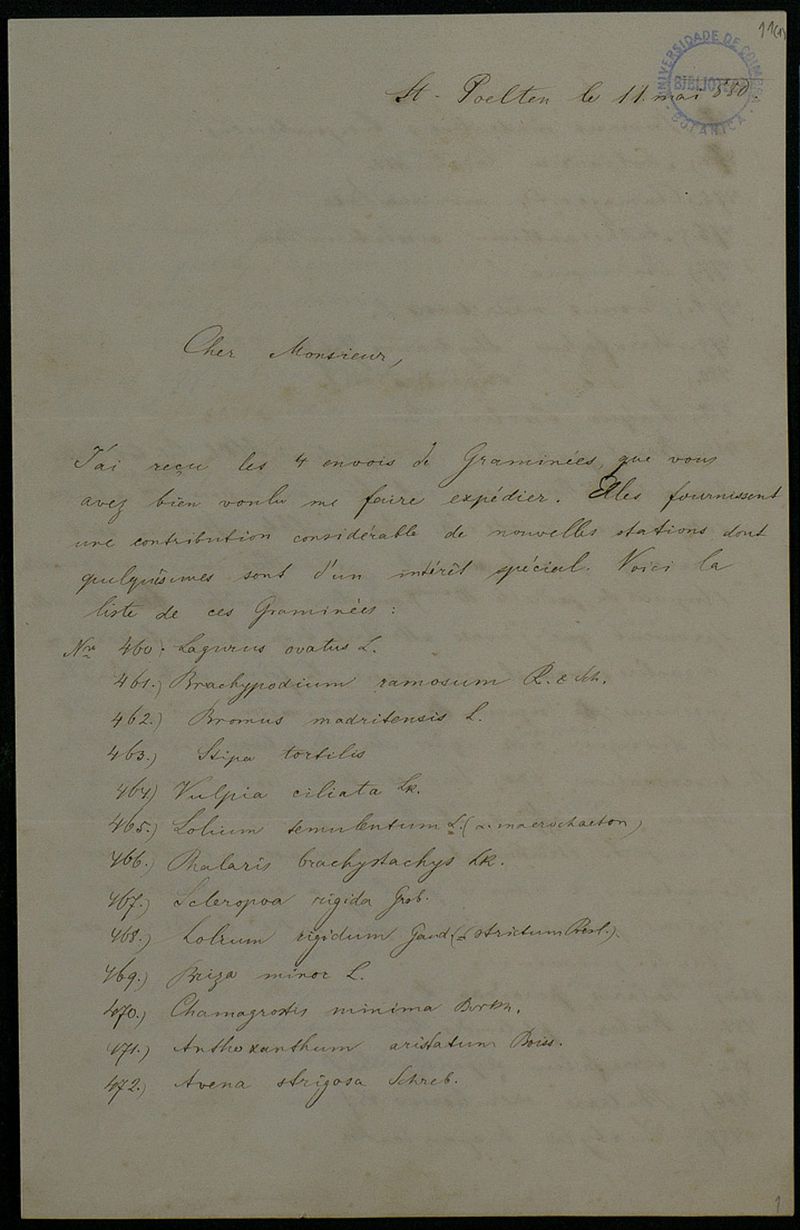 11(1)
UNIVERSIDADE DE COIMBRA
BIBLIOTECA
BOTANICA
St. Poelten le 11. mai 880.
Cher Monsieur,
J'ai reçu les 4 envois de Graminées, que vous
avez bien voulu me faire expédier. Elles fournissent
une contribution considérable de nouvelles stations dont
sont d'un intérêt spécial. Voici la
liste de ces Graminées:
Nro 460. Lagurus ovatus L.
461.) Brachypodium ramosum R. & Sch.
462.) Bromus madritensis L.
463.) Stipa tortilis
464.) Vulpia ciliata Lk.
465.) Lolium temulentum L. (α. macrochaeton)
466.) Phalaris brachystachys Lk.
467.) Scleropoa rigida Grsb.
468.) Lolium rigidum Gaud (= strictum Presl.).
469.) Briza minor L.
470.) Chamagrostis minima Borkh.
471.) Anthoxanthum aristatum Boiss.
472.) Avena strigosa Schreb.
1